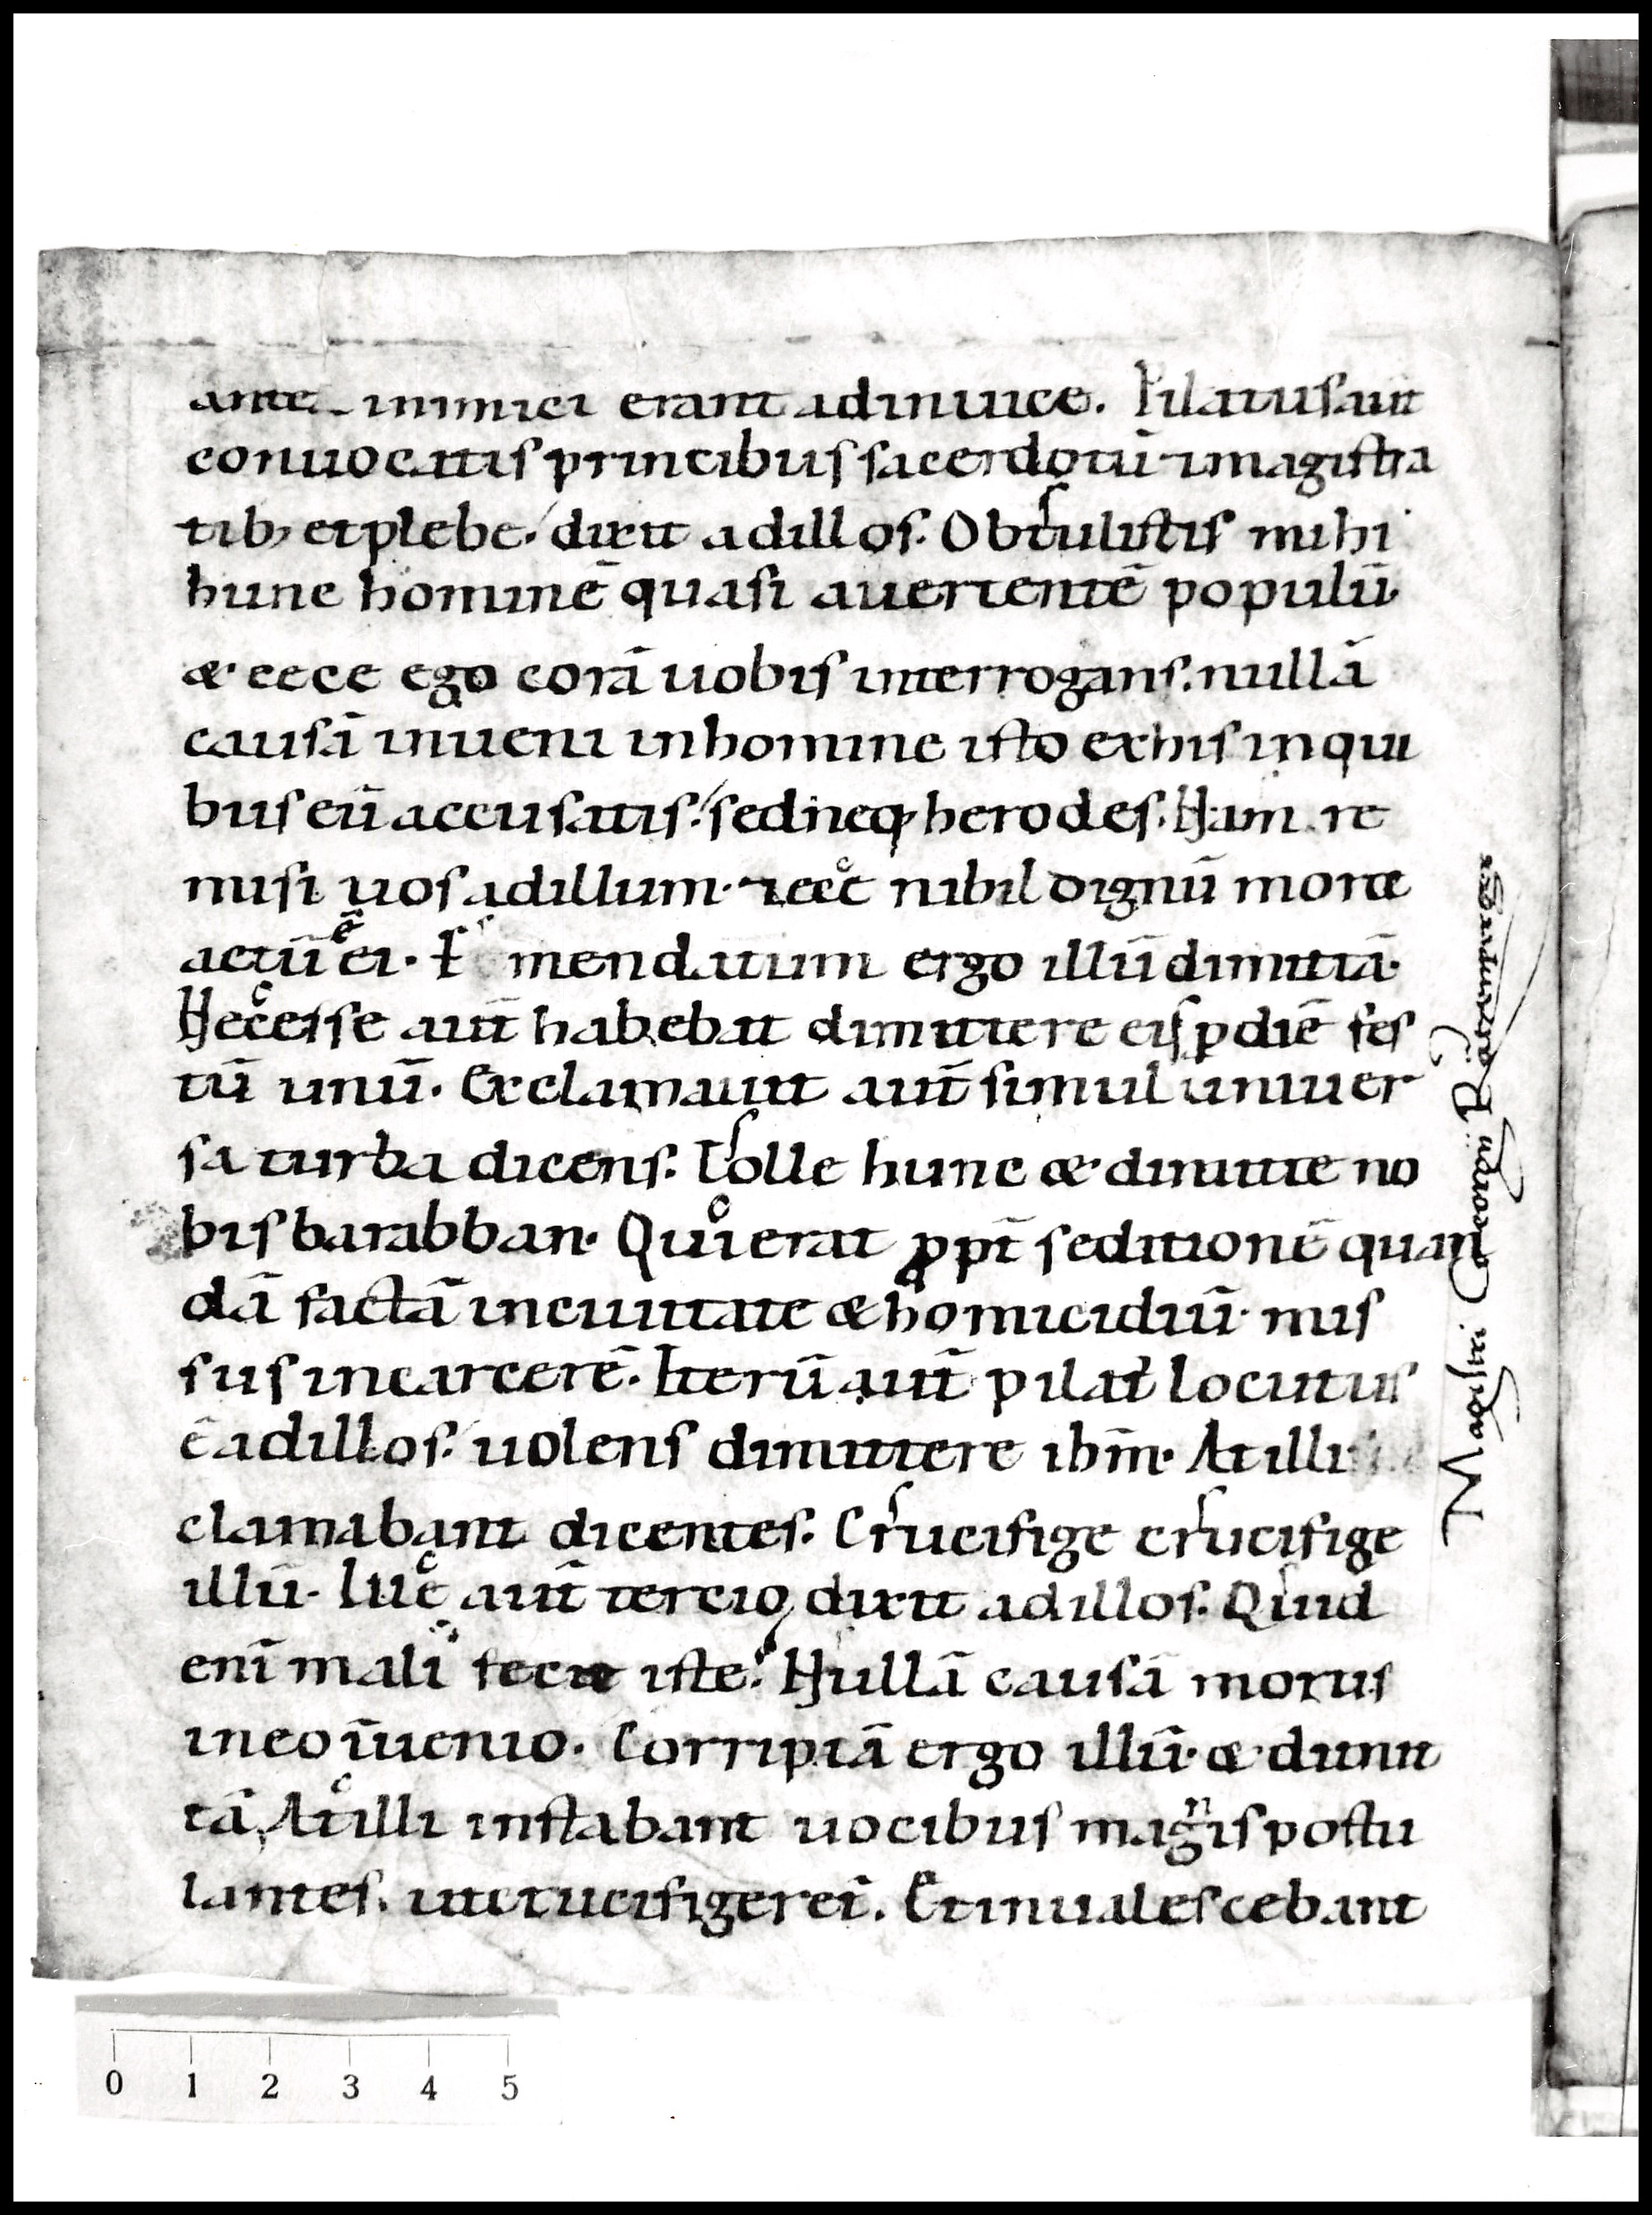 ante inimici erant adinuice. Pilatus aut̄
conuocatis principibus sacerdotū ⁊ magistra
tib; et plebe. dixit ad illos. Obtulistis mihi
hunc hominē quasi auertentē populū.
& ecce ego corā uobis interrogans. nullā
causā inueni in homine isto ex his in qui
bus eū accusatis. sed neq; herodes. Nam re
misi uos ad illum. ⁊ ecc̄ nihil dignū morte
actū ē ei. E mendatum ergo illū dimittā.
Necesse aut̄ habebat dimittere eis p diē fes
tū unū. Exclamauit aut̄ simul uniuer
sa turba dicens. Tolle hunc & dimitte no
bis barabban. Qui erat ꝓpt̄ seditionē quan
dā factā in ciuitate & homicidiū. mis
sus in carcerē. Iterū aut̄ pilat' locutus
ē ad illos. uolens dimittere ihm̄. At illi
clamabant dicentes. Crucifige crucifige
illū. Ille aut̄ tercio dixit ad illos. Quid
enī mali fecit iste. Nullā causā mortis
in eo īuenio. Corripiā ergo illū. & dimit
tā. At illi instabant uocibus magnis postu
lantes. ut crucifigeret̄. Et inualescebant